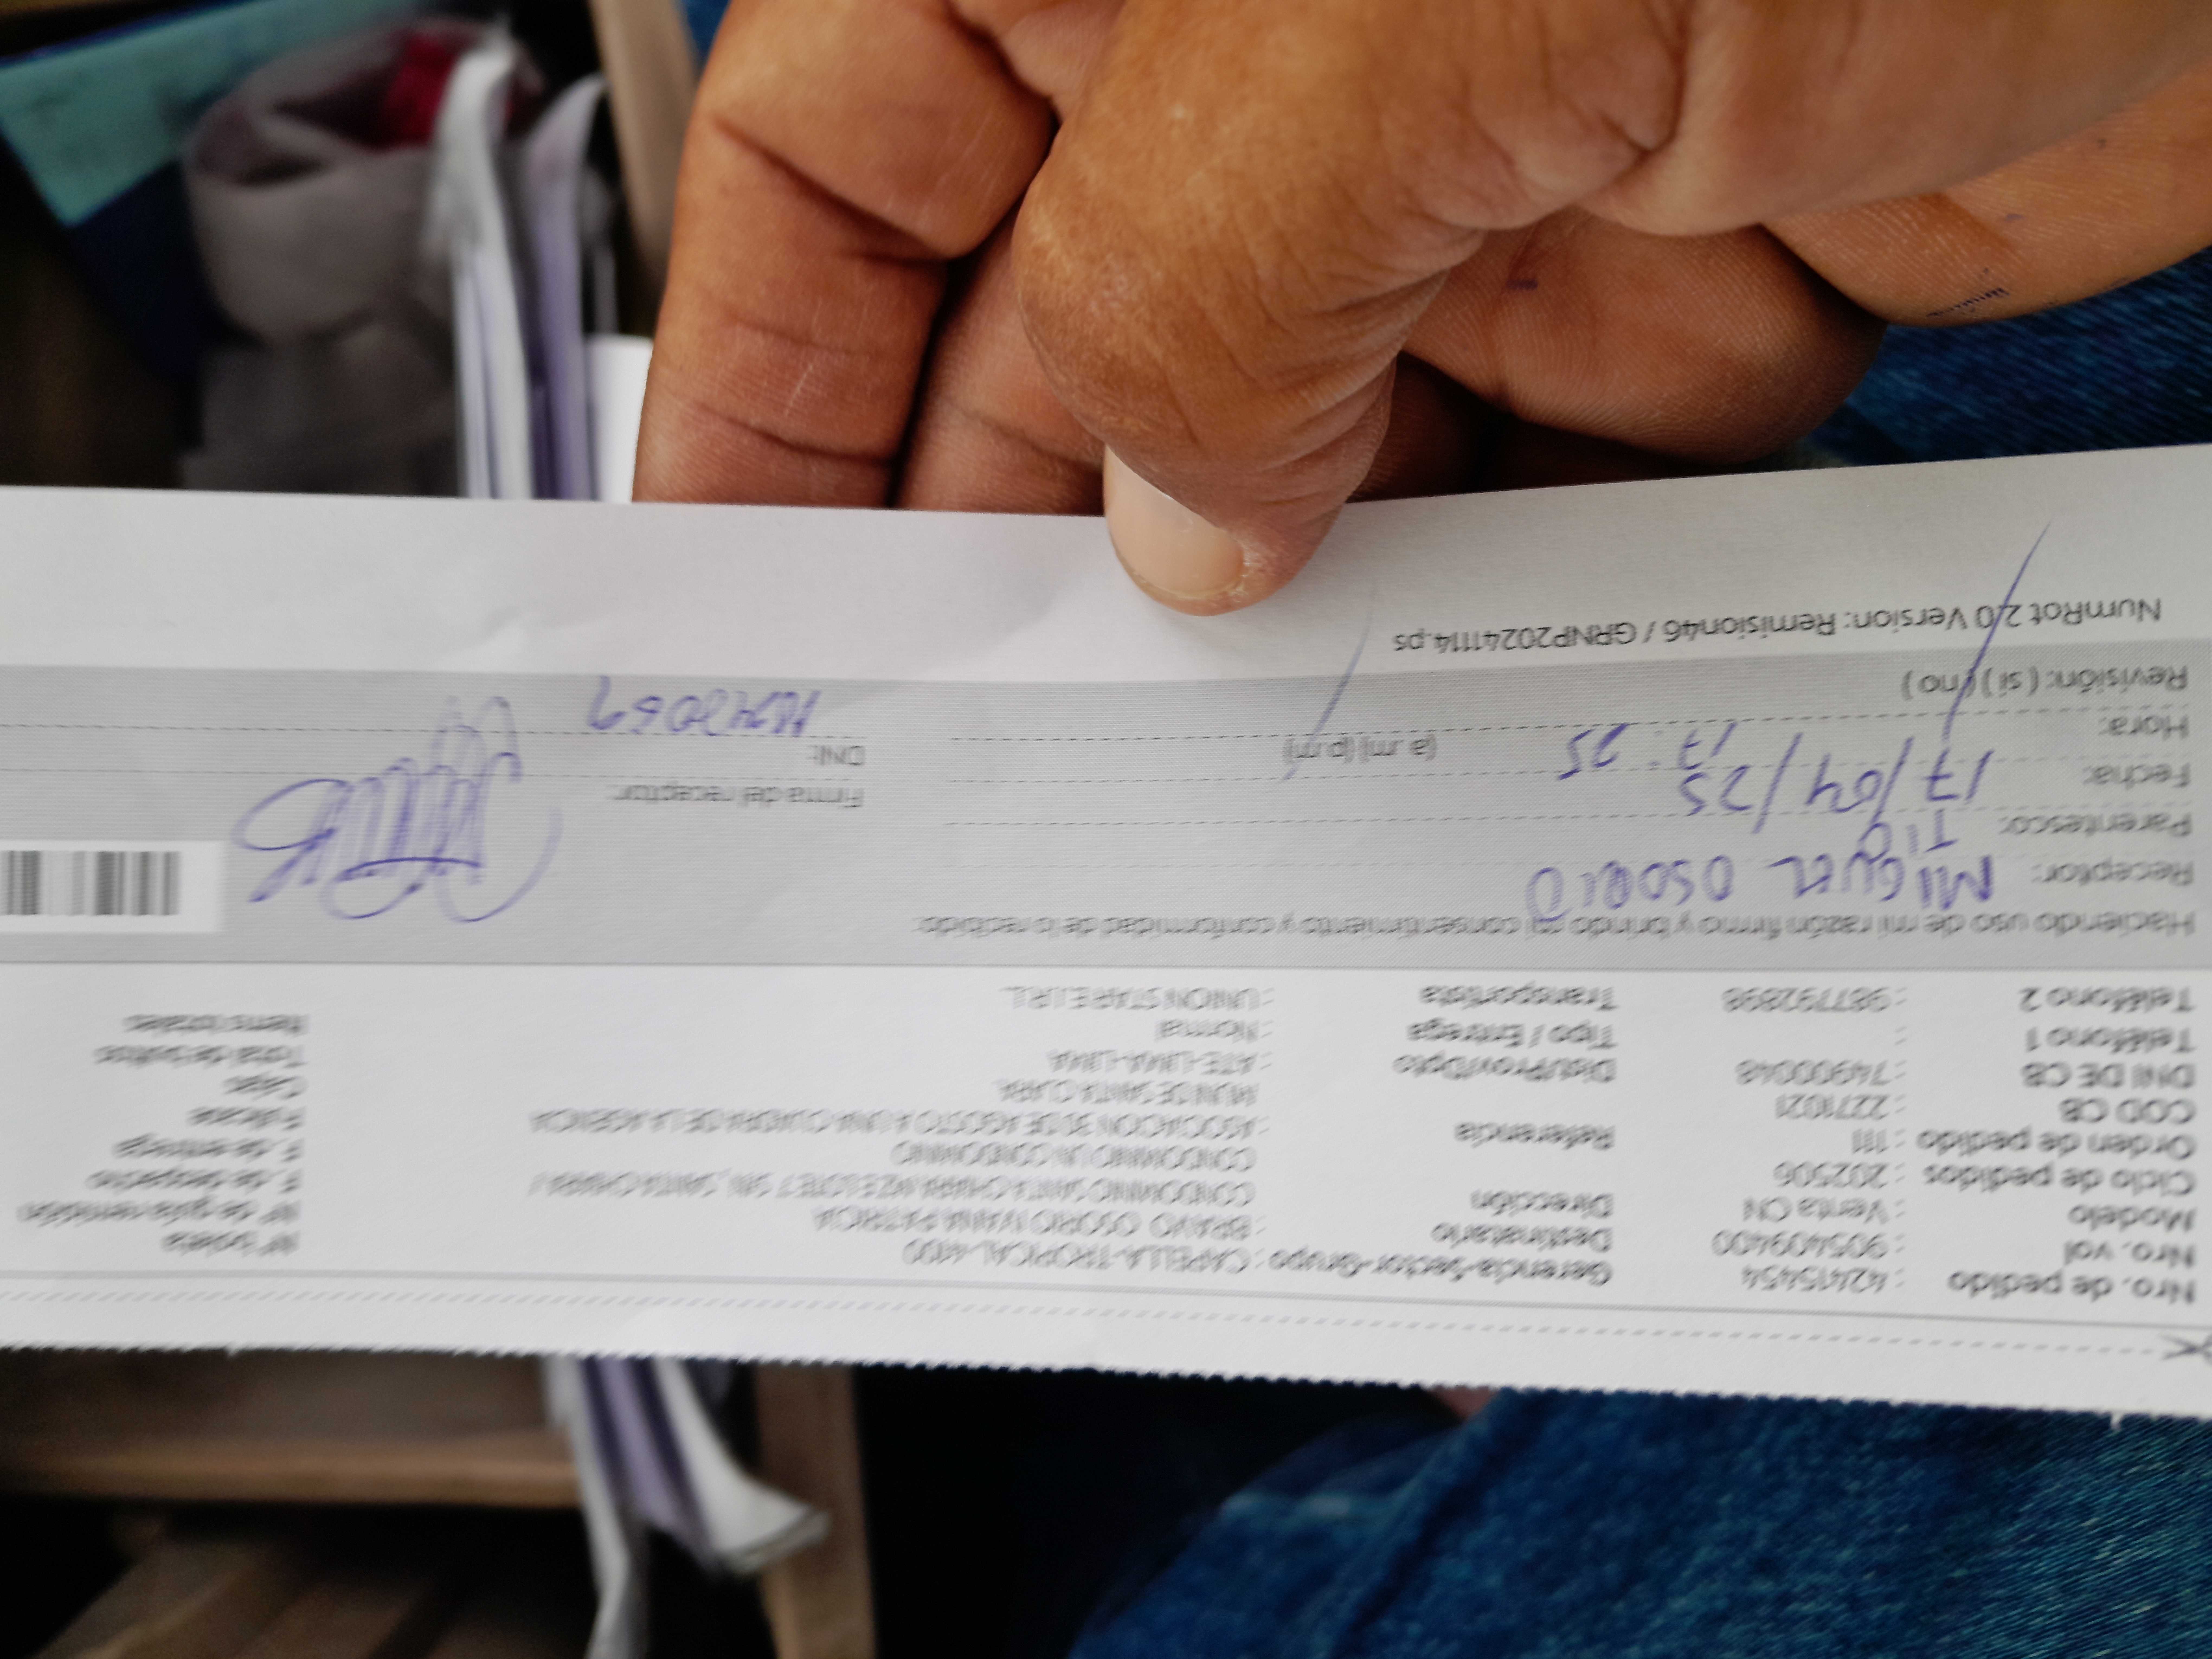 Nro. de pedido : 42415454 Gerencia-Sector-Grupo : CAPELLA-TROPICAL-4100 N° boleta
Nro. vol : 905409400 Destinatario : BRAVO OSORIO IVANA PATRICIA N° de guía remisión
Modelo : Venta CN Dirección CONDOMINIO SANTA CLARA
Ciclo de pedidos : 202506 CONDOMINIO UN CONDOMINIO F. de despacho
Orden de pedido : 111 Referencia : ASOCIACION 30 DE AGOSTO A UNA CUADRA DE LA AGENCIA F. de entrega
COD CB : 2271021 MUNI DE SANTA CLARA
DNI DE CB : 74900048 Dist/Prov/Dpto : ATE-LIMA-LIMA Cajas
Teléfono 1 : Tipo / Entrega : Normal Total de bultos
Teléfono 2 : 987792898 Transportista : UNION STAR E.I.R.L. Items totales
Haciendo uso de mi razón firmo y brindo mi consentimiento y conformidad de lo recibido.
Receptor: MIGUEL OSORIO
Parentesco: TIO
Fecha: 17/04/25 Firma del receptor:
Hora: 17:25 (a.m) (p.m) DNI:
Revisión: ( si ) ( no )
NumRot 2.0 Version: Remision46 / GRNP20241114.ps